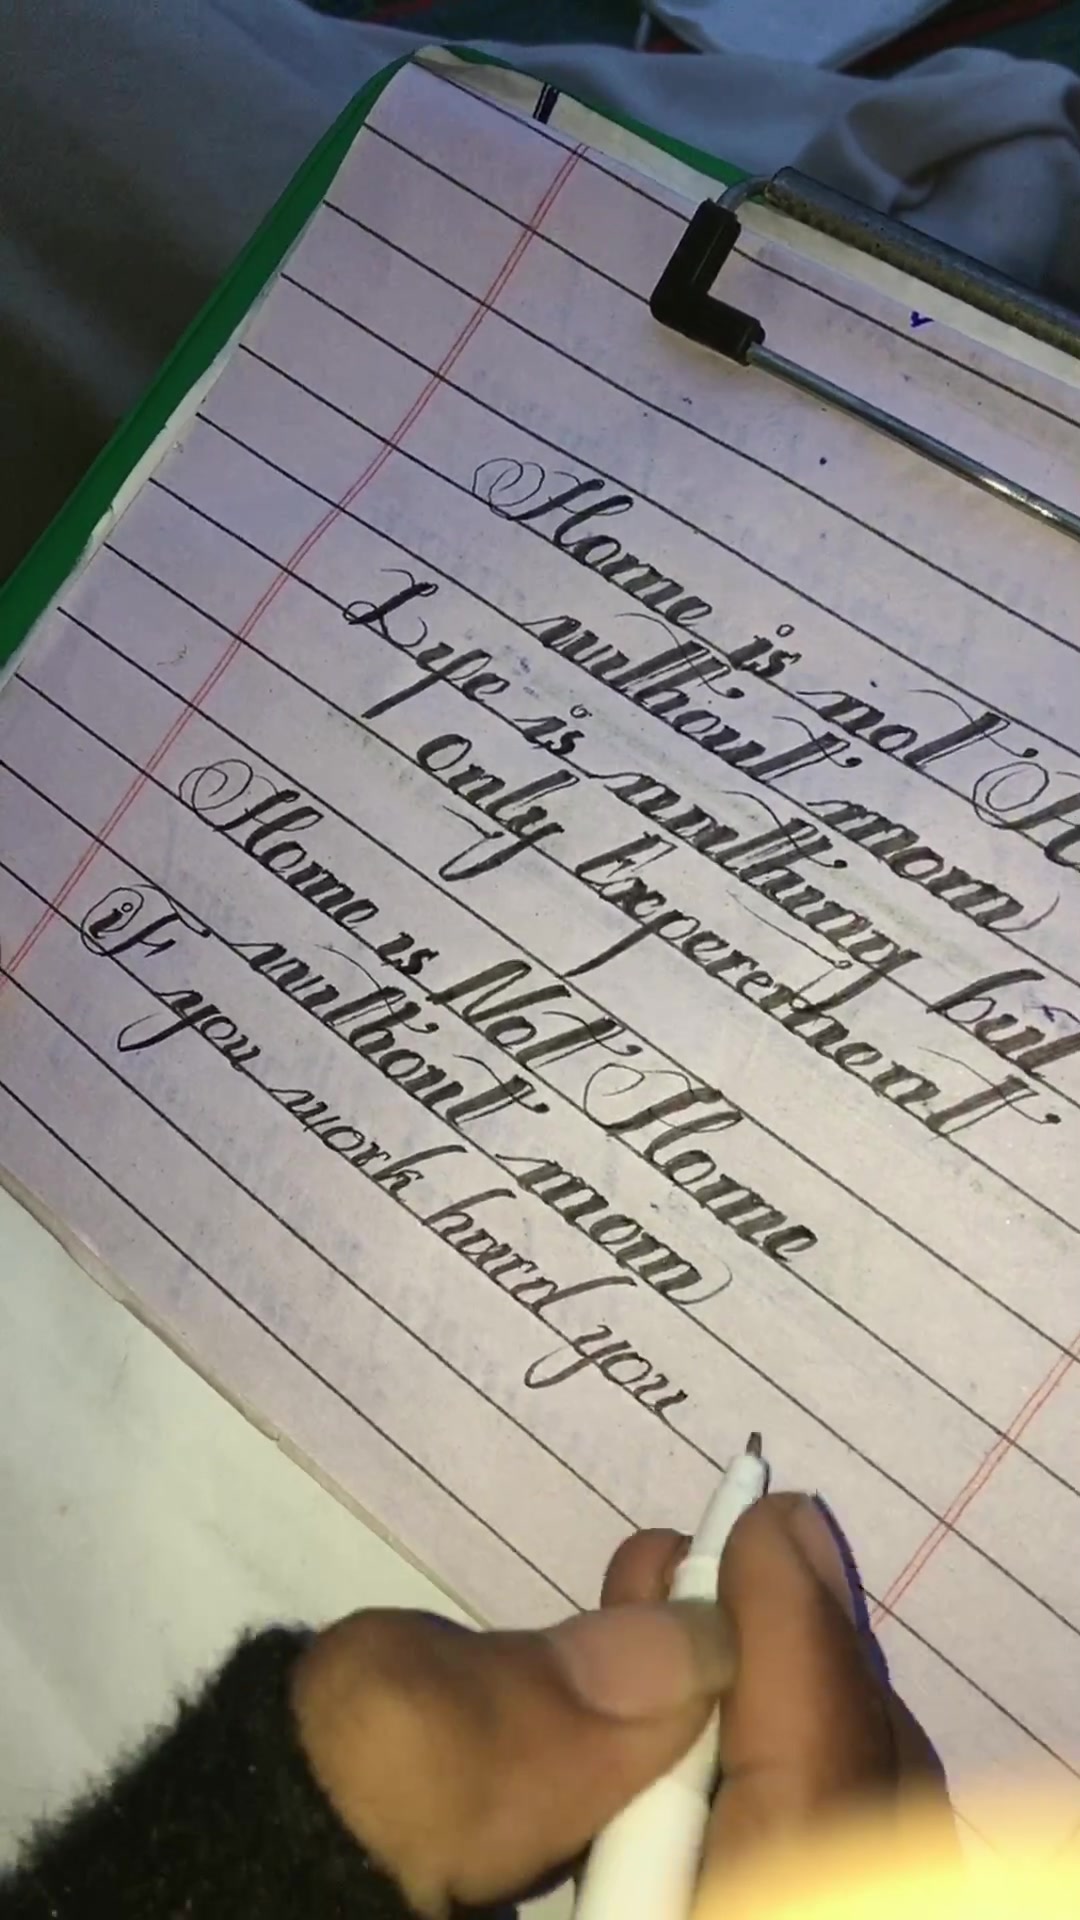 Home is not
without mom
Life is nuthing but
Only Experement
Home is Not Home
without mom
iF you work hard you